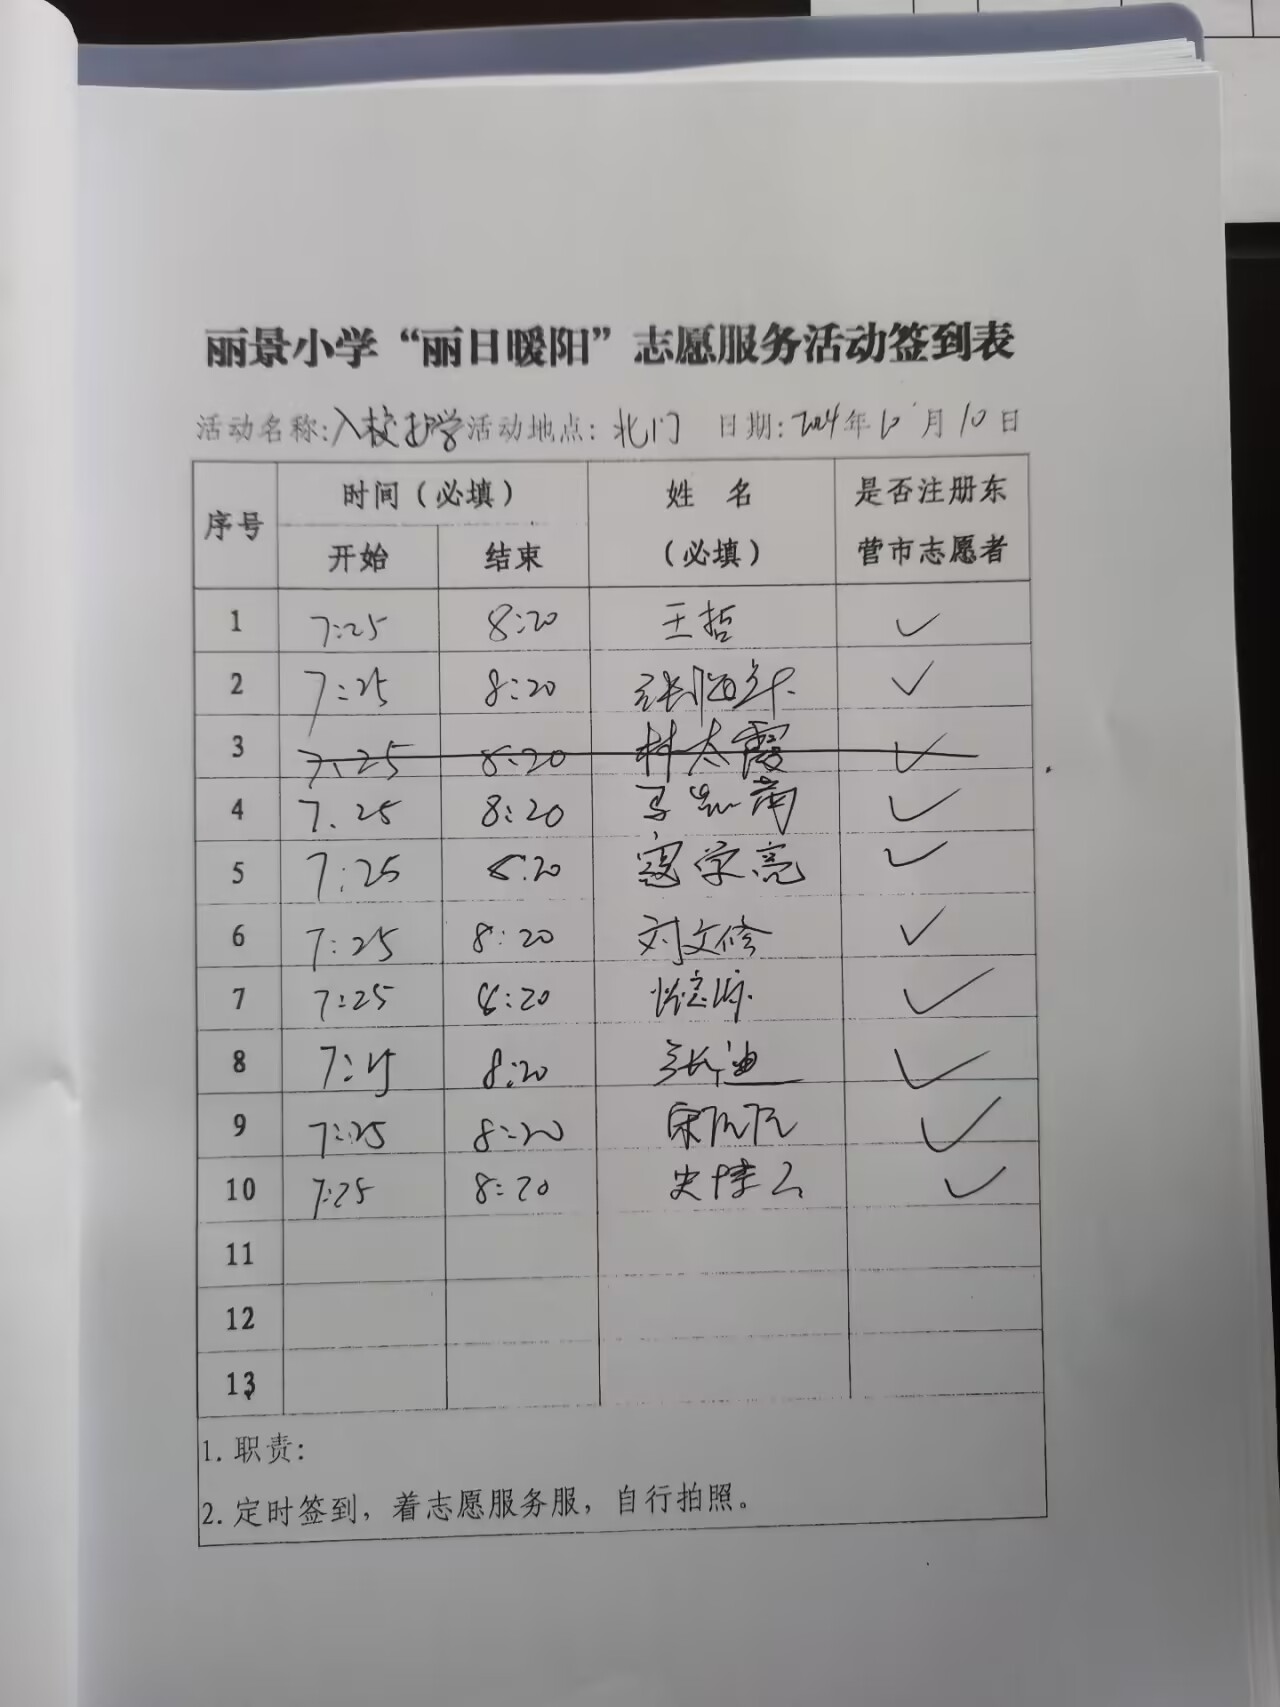 丽景小学“丽日暖阳”志愿服务活动签到表
活动名称:入校护学 活动地点: 北门 日期: 2024年10月10日
序号 时间(必填) 姓名(必填) 是否注册东营市志愿者
开始 结束
1 7:25 8:20 王哲 ✓
2 7:25 8:20 张 ✓
3 7:25 8:20 林太霞 ✓
4 7.25 8:20 ✓
5 7:25 8:20 寇学亮 ✓
6 7:25 8:20 刘文修 ✓
7 7:25 8:20 ✓
8 7:25 8:20 张迪 ✓
9 7:25 8:20 宋 ✓
10 7:25 8:20 史 ✓
11
12
13
1. 职责:
2. 定时签到，着志愿服务服，自行拍照。